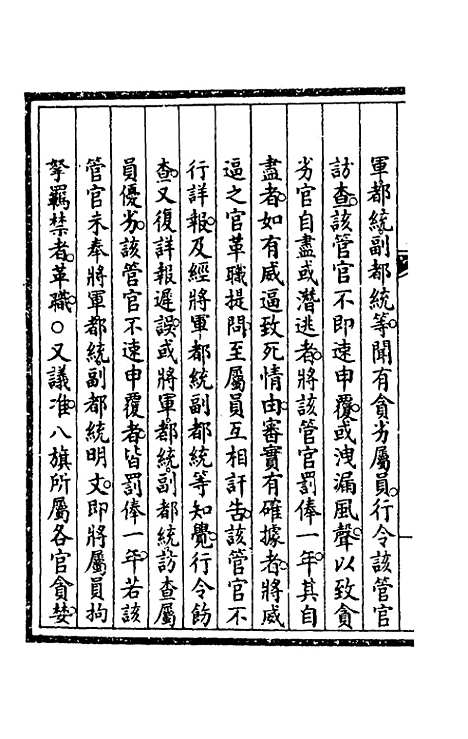 軍都統副都統等聞有貪劣屬員行令該管官
訪查該管官不即速申覆或洩漏風聲以致貪
劣官自盡或潛逃者將該管官罰俸一年其自
盡者如有威逼致死情由審實有確據者將威
逼之官革職提問至屬員互相訐告該管官不
行詳報及經將軍都統副都統等知覺行令飭
查又復詳報遲誤或將軍都統副都統訪查屬
員優劣該管官不速申覆者皆罰俸一年若該
管官未奉將軍都統副都統明文即將屬員拘
拏羈禁者革職〇又議准八旗所屬各官貪婪